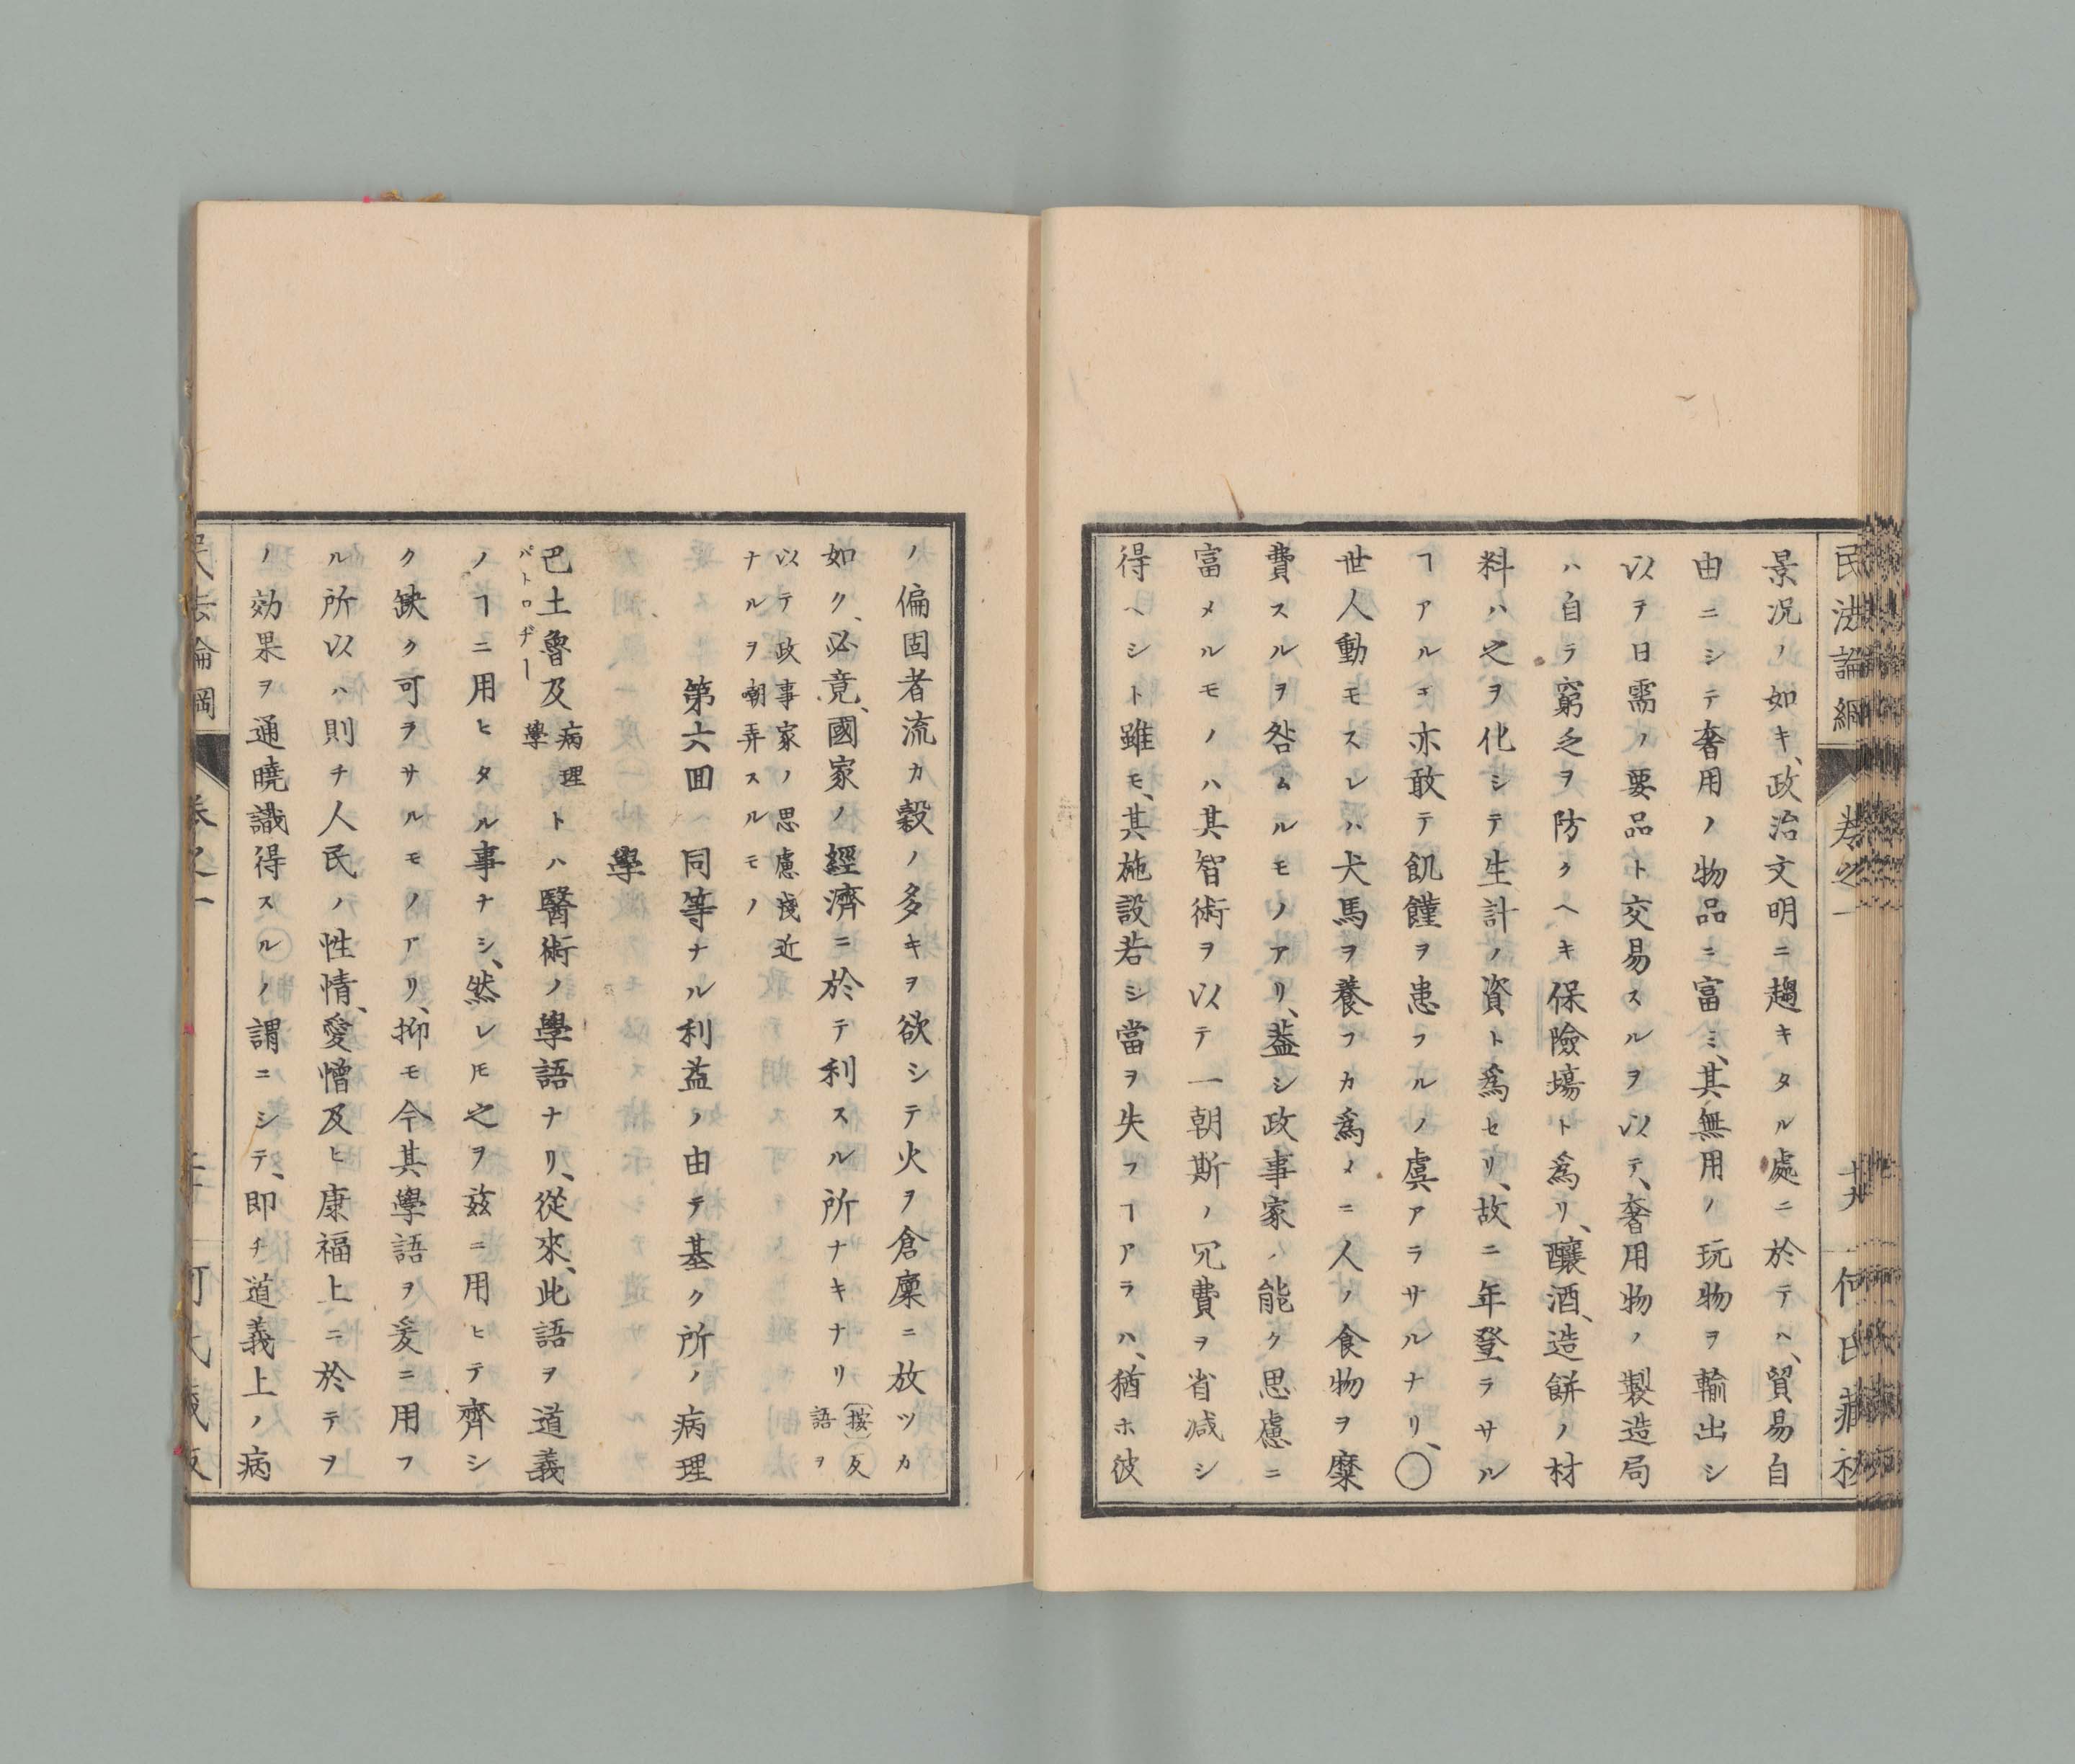 民法論綱　卷之一　十九　何氏藏
景况ノ如キ、政治文明ニ趨キタル處ニ於テハ、貿易自
由ニシテ奢用ノ物品ニ富ミ、其無用ノ玩物ヲ輸出シ
以テ日需ノ要品ト交易スルヲ以テ、奢用物ノ製造局
ハ自ラ窮乏ヲ防クヘキ保險塲ト爲リ、釀酒、造餅ノ材
料ハ之ヲ化シテ生計ノ資ト爲セリ、故ニ年登ラサル
ヿアルモ亦敢テ飢饉ヲ患フルノ虞アラサルナリ、〇
世人動モスレハ犬馬ヲ養フカ爲メニ人ノ食物ヲ糜
費スルヲ咎ムルモノアリ、蓋シ政事家ノ能ク思慮ニ
富メルモノハ其智術ヲ以テ一朝斯ノ冗費ヲ省减シ
得ヘシト雖モ、其施設若シ當ヲ失フヿアラハ、猶ホ彼
ノ偏固者流カ穀ノ多キヲ欲シテ火ヲ倉廩ニ放ツカ
如ク、必竟、國家ノ經濟ニ於テ利スル所ナキナリ（按）反語ヲ
以テ政事家ノ思慮淺近ナルヲ嘲弄スルモノ
第六回　同等ナル利益ノ由テ基ク所ノ病理
學
巴土魯及パトロヂー病理學トハ醫術ノ學語ナリ、從來、此語ヲ道義
ノヿニ用ヒタル事ナシ、然レ𪜈之ヲ玆ニ用ヒテ齊シ
ク缺ク可ラサルモノアリ、抑モ今其學語ヲ爰ニ用フ
ル所以ハ則チ人民ノ性情、愛憎及ヒ康福上ニ於テヲ
ノ効果ヲ通曉識得スルノ謂ニシテ、即チ道義上ノ病
民法論綱　卷之一　二十　何氏藏版